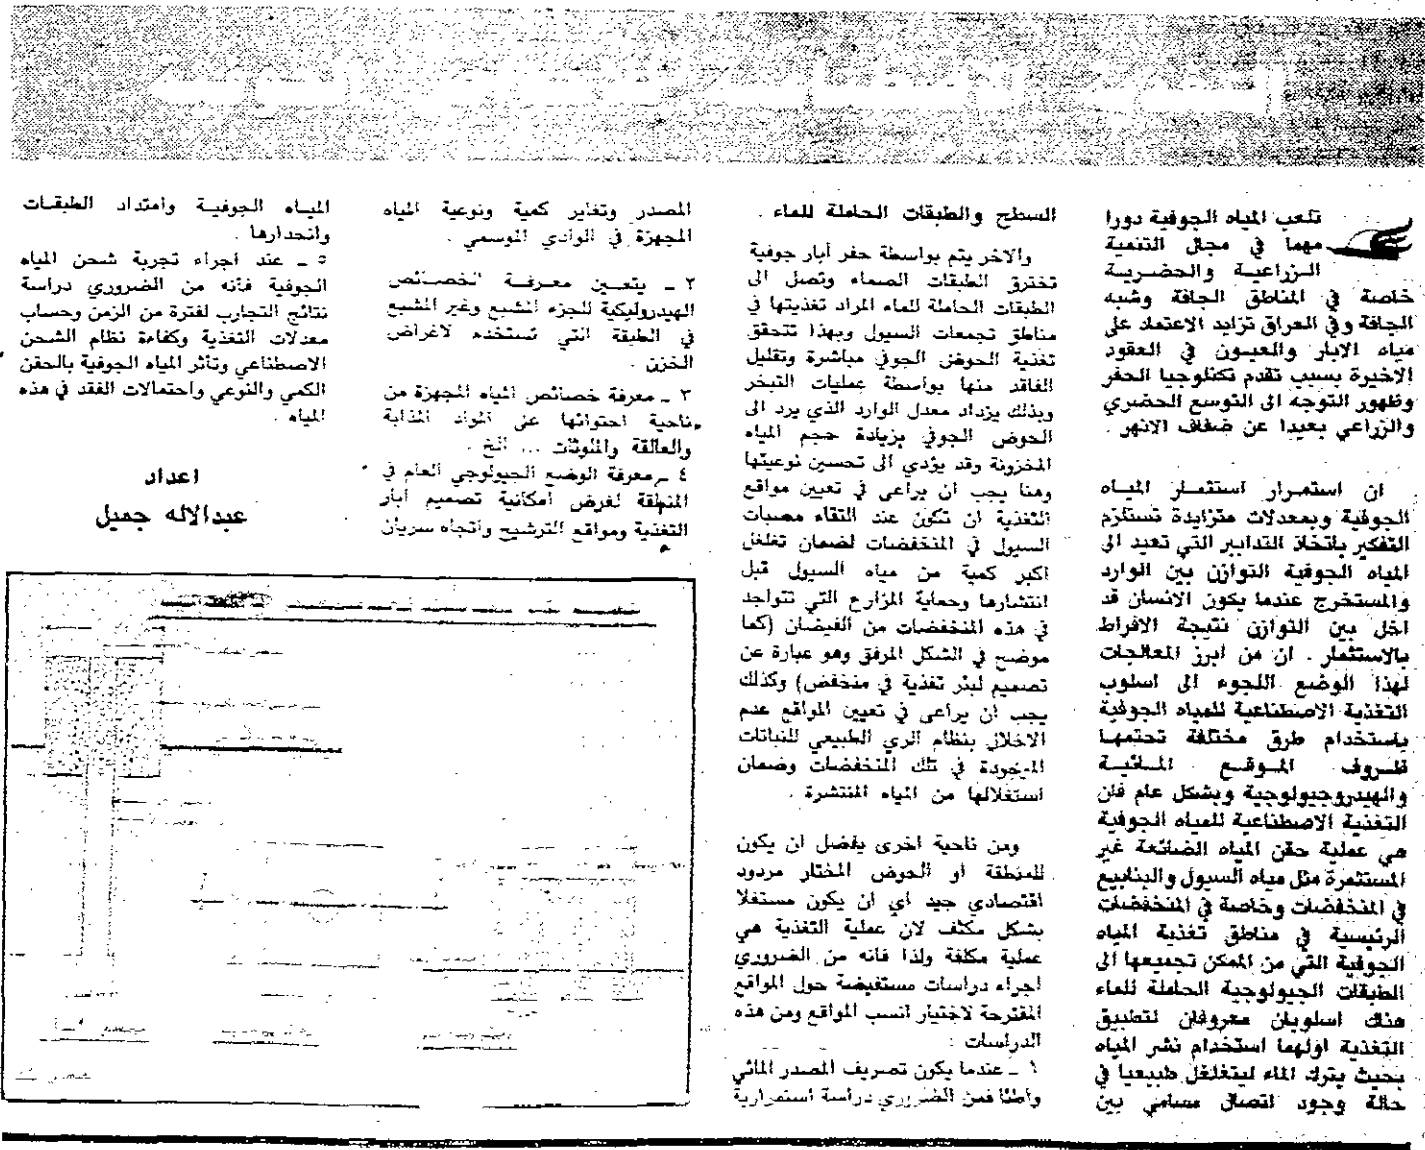 التغذية الاصطناعية للمياه الجوفية
تلعب المياه الجوفية دورا
مهما في مجال التنمية
الزراعية والحضرية
خاصة في المناطق الجافة وشبه
الجافة وفي العراق تزايد الاعتماد على
مياه الابار والعيون في العقود
الاخيرة بسبب تقدم تكنلوجيا الحفر
وظهور التوجه الى التوسع الحضري
والزراعي بعيدا عن ضفاف الانهر .
ان استمرار استثمار المياه
الجوفية وبمعدلات متزايدة تستلزم
التفكير باتخاذ التدابير التي تعيد الى
المياه الجوفية التوازن بين الوارد
والمستخرج عندما يكون الانسان قد
اخل بين التوازن نتيجة الافراط
بالاستثمار . ان من ابرز المعالجات
لهذا الوضع اللجوء الى اسلوب
التغذية الاصطناعية للمياه الجوفية
باستخدام طرق مختلفة تحتمها
ظروف الموقع المائية
والهيدروجيولوجية وبشكل عام فان
التغذية الاصطناعية للمياه الجوفية
هي عملية حقن المياه الضائعة غير
المستثمرة مثل مياه السيول والينابيع
في المنخفضات وخاصة في المنخفضات
الرئيسية في مناطق تغذية المياه
الجوفية التي من الممكن تجميعها الى
الطبقات الجيولوجية الحاملة للماء
هناك اسلوبان معروفان لتطبيق
التغذية اولهما استخدام نشر المياه
بحيث يترك الماء ليتغلغل طبيعيا في
حالة وجود اتصال مسامي بين
السطح والطبقات الحاملة للماء .
والاخر يتم بواسطة حفر أبار جوفية
تخترق الطبقات الصماء وتصل الى
الطبقات الحاملة للماء المراد تغذيتها في
مناطق تجمعات السيول وبهذا تتحقق
تغذية الحوض الجوفي مباشرة وتقليل
الفاقد منها بواسطة عمليات التبخر
وبذلك يزداد معدل الوارد الذي يرد الى
الحوض الجوفي بزيادة حجم المياه
المخزونة وقد يؤدي الى تحسين نوعيتها
وهنا يجب ان يراعى في تعيين مواقع
التغذية ان تكون عند التقاء مصبات
السيول في المنخفضات لضمان تغلغل
اكبر كمية من مياه السيول قبل
انتشارها وحماية المزارع التي تتواجد
في هذه المنخفضات من الفيضان (كما
موضح في الشكل المرفق وهو عبارة عن
تصميم لبئر تغذية في منخفض) وكذلك
يجب ان يراعى في تعيين المواقع عدم
الاخلال بنظام الري الطبيعي للنباتات
الموجودة في تلك المنخفضات وضمان
استغلالها من المياه المنتشرة .
ومن ناحية اخرى يفضل ان يكون
للمنطقة أو الحوض المختار مردود
اقتصادي جيد أي ان يكون مستغلا
بشكل مكثف لان عملية التغذية هي
عملية مكلفة ولذا فانه من الضروري
اجراء دراسات مستفيضة حول المواقع
المقترحة لاختيار انسب المواقع ومن هذه
الدراسات :
١ ـ عندما يكون تصريف المصدر المائي
واطئا فمن الضروري دراسة استمرارية
المصدر وتغاير كمية ونوعية المياه
المجهزة في الوادي الموسمي .
٢ ـ يتعين معرفة الخصائص
الهيدروليكية للجزء المشبع وغير المشبع
في الطبقة التي تستخدم لاغراض
الخزن .
٣ ـ معرفة خصائص المياه المجهزة من
ناحية احتوائها على المواد المذابة
والعالقة والملوثات ... الخ .
٤ ـ معرفة الوضع الجيولوجي العام في
المنطقة لغرض أمكانية تصميم ابار
التغذية ومواقع الترشيح واتجاه سريان
المياه الجوفية وامتداد الطبقات
وانحدارها .
٥ ـ عند اجراء تجربة شحن المياه
الجوفية فأنه من الضروري دراسة
نتائج التجارب لفترة من الزمن وحساب
معدلات التغذية وكفاءة نظام الشحن
الاصطناعي وتأثر المياه الجوفية بالحقن
الكمي والنوعي واحتمالات الفقد في هذه
المياه .
اعداد
عبدالاله جميل